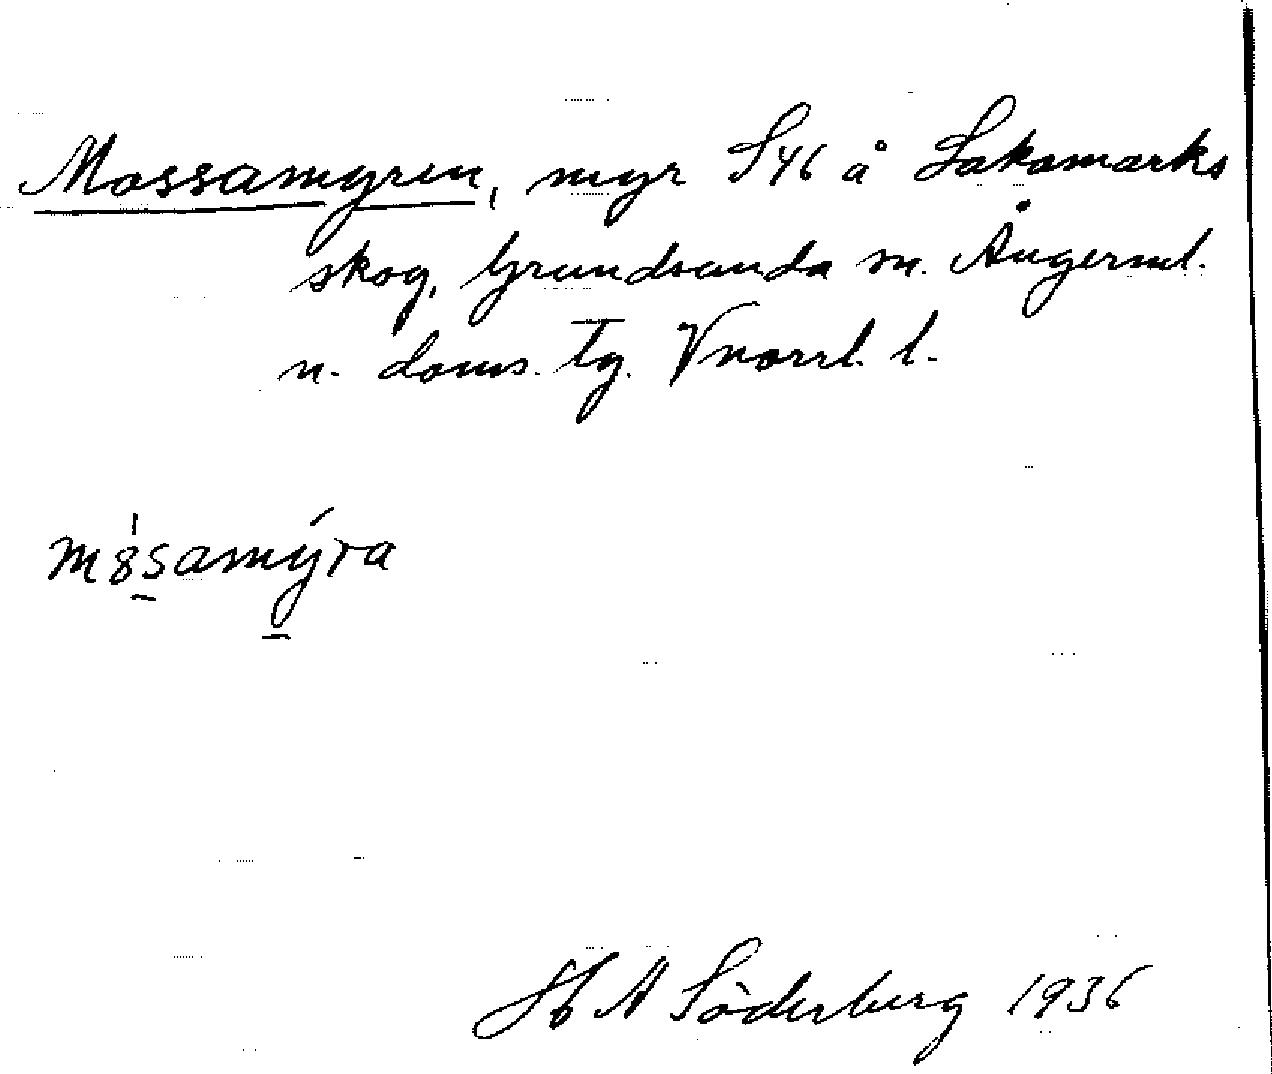 Mossamyren, myr S46 å Lakamarks
skog, Grundsunda sn. Ångerml.
n. doms. tg. Vnorrl. l.
m8samýra
H A Söderberg 1936